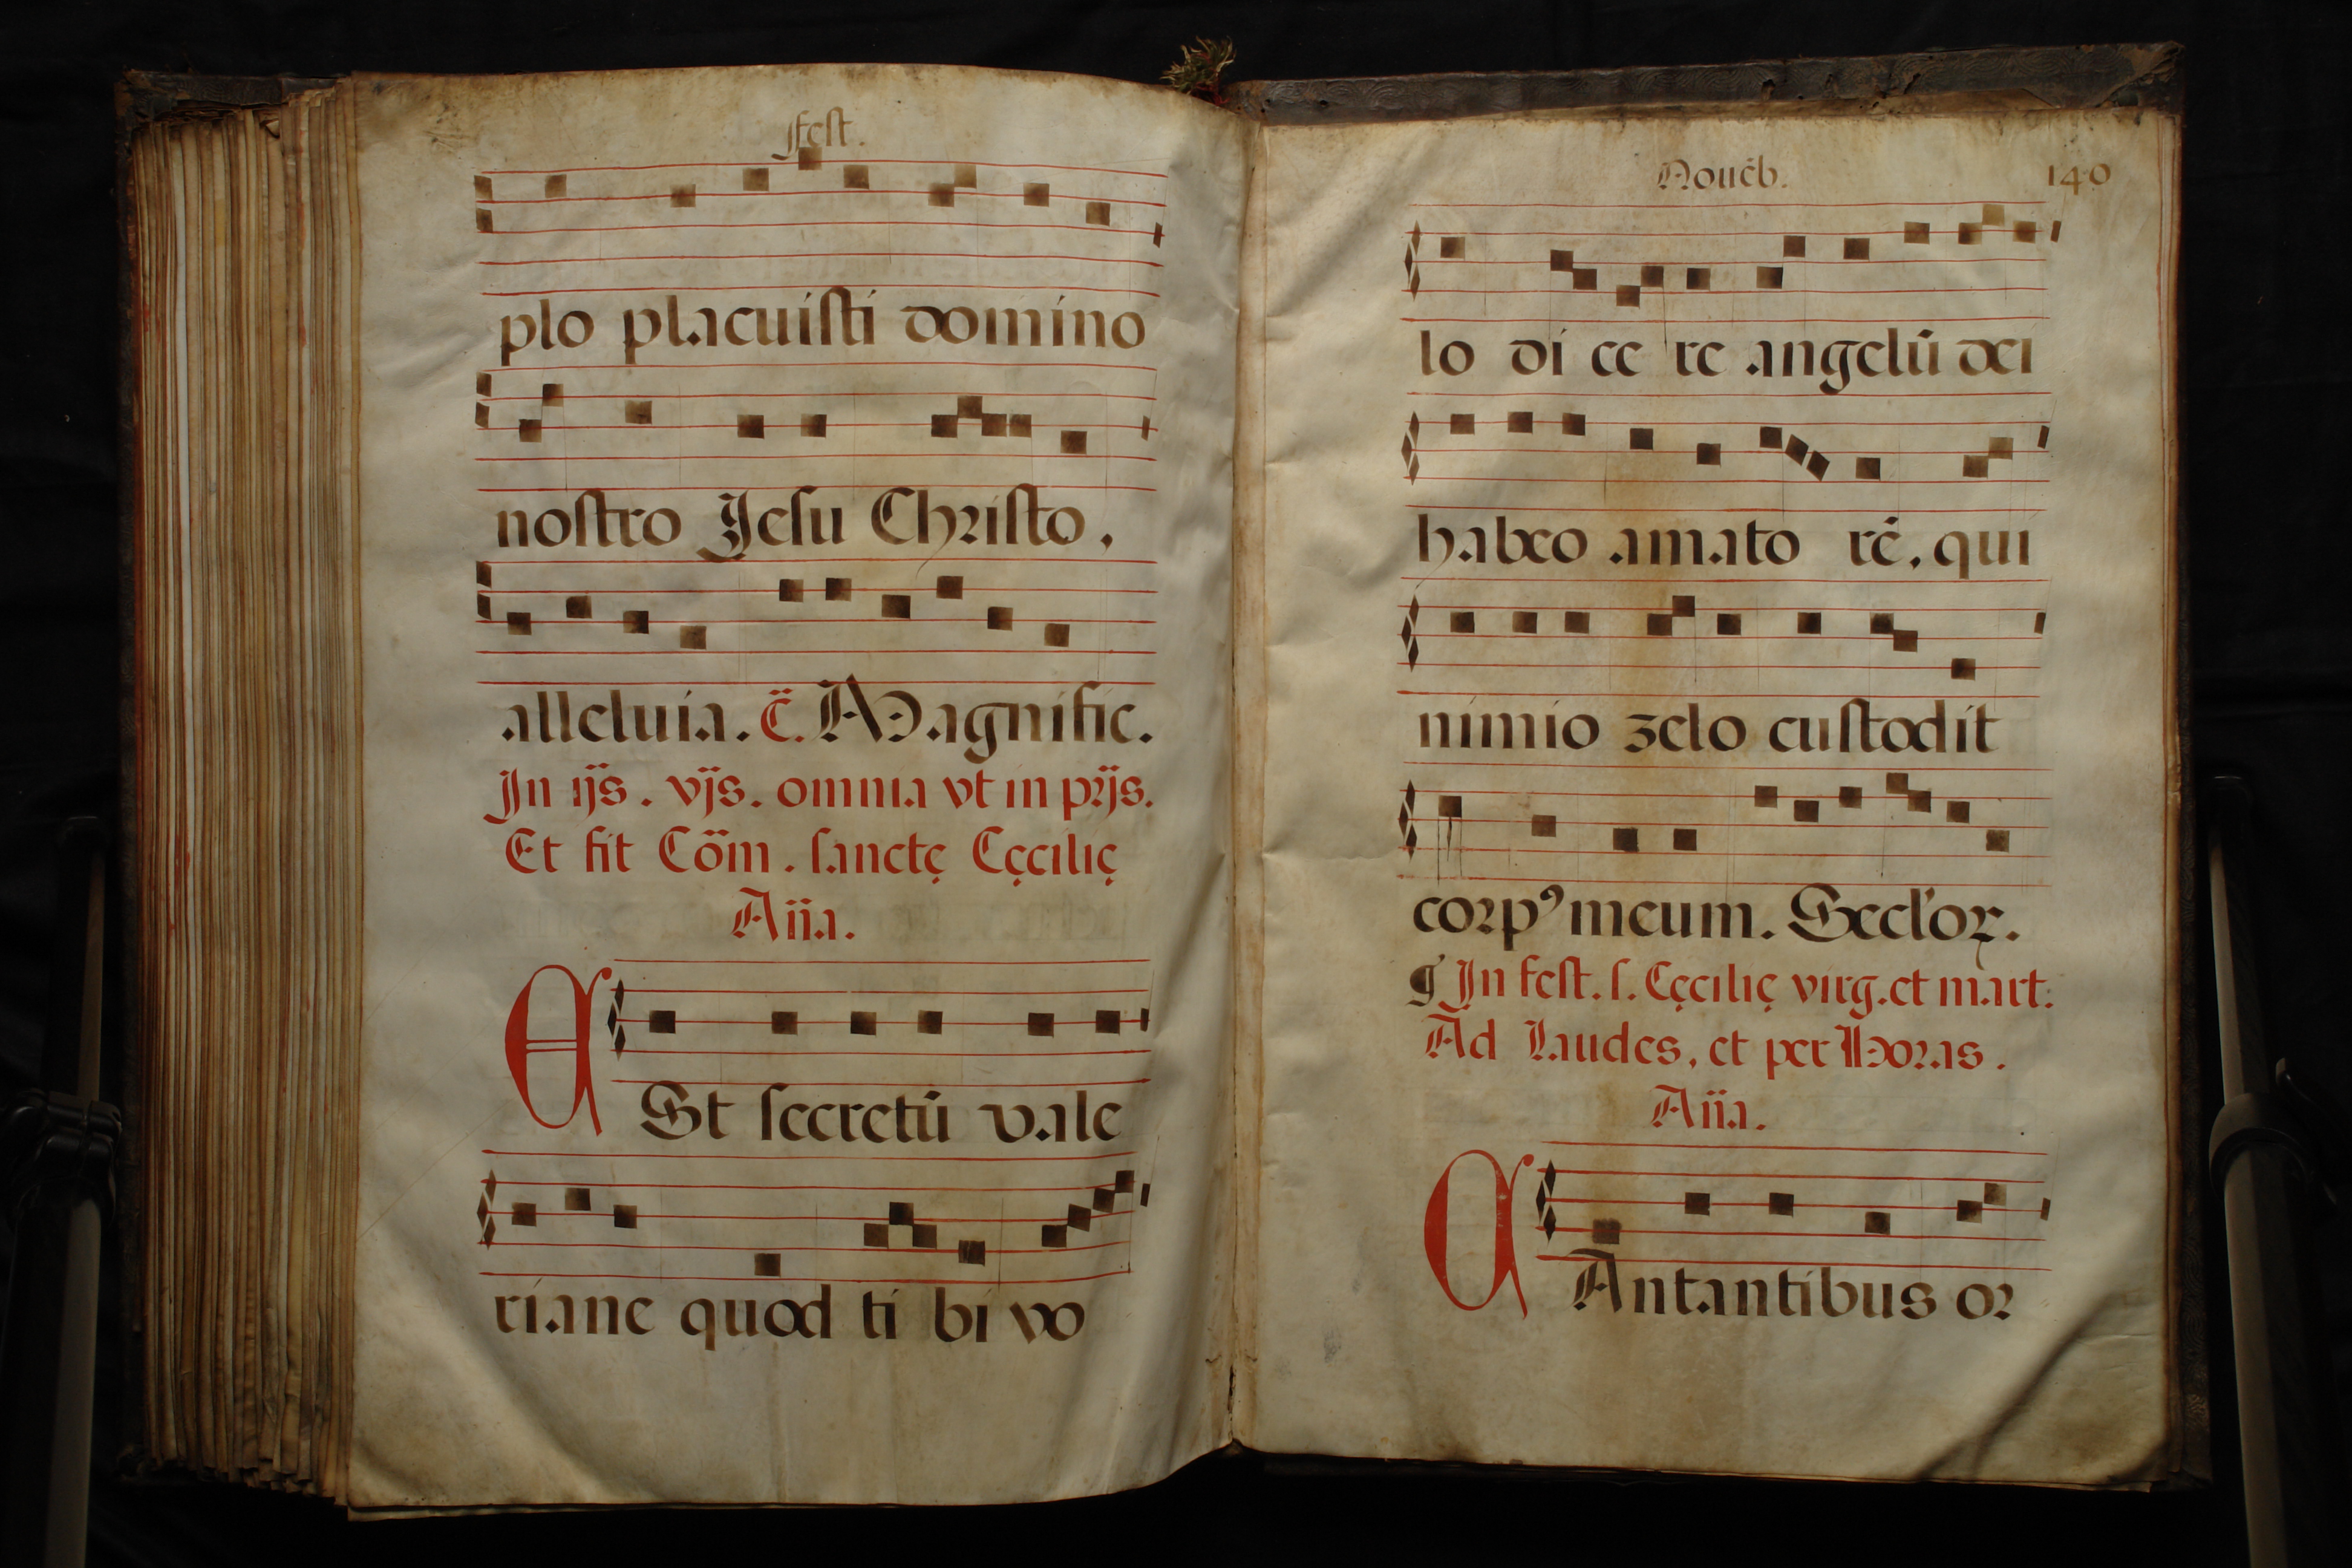 Fest.
plo placuisti domino
nostro Jesu Christo.
alleluia. C̃. Magnific.
In ijs. vjs. omnia vt in prijs.
Et fit Cõm. sanctę Cęcilię
Aña.
E
St secretũ vale
riane quod ti bi vo
Nouẽb. 140
lo di ce re angelũ dei
habeo amato rẽ. qui
nimio zelo custodit
corpꝰ meum. Secl'oꝝ.
¶ In fest. s. Cęcilię virg. et mart.
Ad Laudes, et per Horas.
Aña.
C
Antantibus or